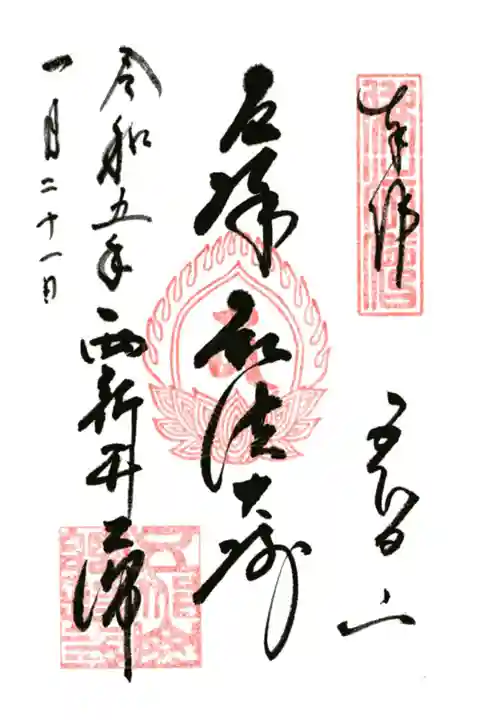 奉拝
五智山
厄除弘法大師
西新井大師
令和五年
一月二十一日